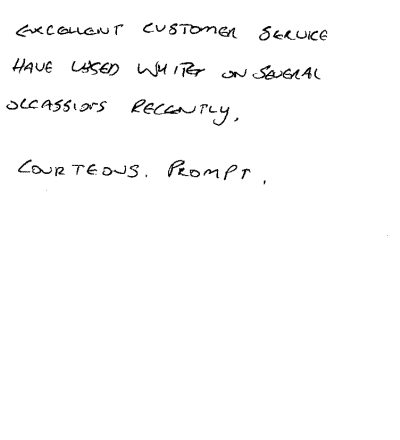 EXCELLENT CUSTOMER SERVICE
HAVE USED WHITES ON SEVERAL
OCCASSIONS RECENTLY,
COURTEOUS. PROMPT,